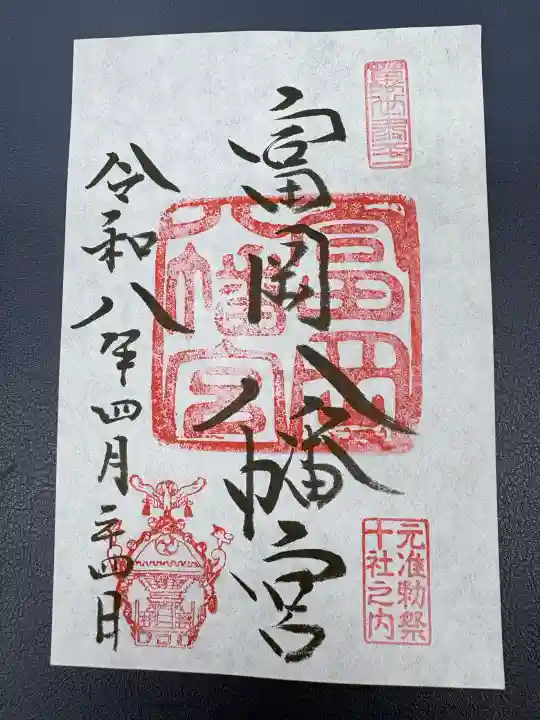 富岡八幡宮
富岡
八幡宮
元准勅祭
十社之内
令和八年四月二十四日